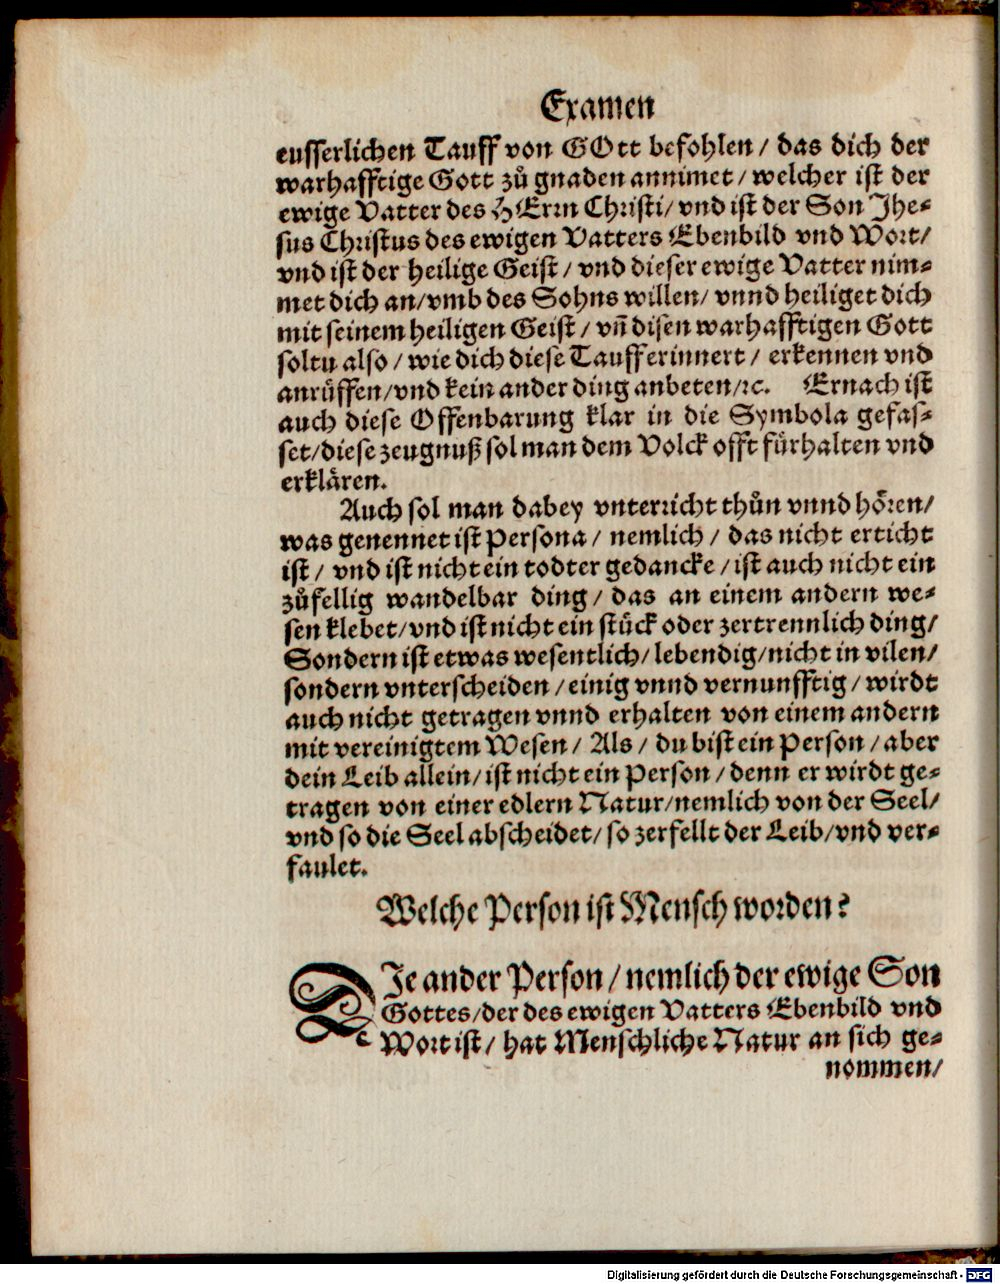 Examen
eusserlichen Tauff von GOtt befohlen / das dich der
warhafftige Gott zů gnaden annimet / welcher ist der
ewige Vatter des HErrn Christi / vnd ist der Son Jhe-
sus Christus des ewigen Vatters Ebenbild vnd Wort /
vnd ist der heilige Geist / vnd dieser ewige Vatter nim-
met dich an / vmb des Sohns willen / vnnd heiliget dich
mit seinem heiligen Geist / vñ disen warhafftigen Gott
soltu also / wie dich diese Tauff erinnert / erkennen vnd
anrůffen / vnd kein ander ding anbeten / ꝛc. Ernach ist
auch diese Offenbarung klar in die Symbola gefas-
set / diese zeugnuß sol man dem Volck offt fürhalten vnd
erklären.
Auch sol man dabey vnterricht thůn vnnd hören /
was genennet ist Persona / nemlich / das nicht erticht
ist / vnd ist nicht ein todter gedancke / ist auch nicht ein
zůfellig wandelbar ding / das an einem andern we-
sen klebet / vnd ist nicht ein stück oder zertrennlich ding /
Sondern ist etwas wesentlich / lebendig / nicht in vilen /
sondern vnterscheiden / einig vnnd vernunfftig / wirdt
auch nicht getragen vnnd erhalten von einem andern
mit vereinigtem Wesen / Als / du bist ein Person / aber
dein Leib allein / ist nicht ein Person / denn er wirdt ge-
tragen von einer edlern Natur / nemlich von der Seel /
vnd so die Seel abscheidet / so zerfellt der Leib / vnd ver-
faulet.
Welche Person ist Mensch worden?
DJe ander Person / nemlich der ewige Son
Gottes / der des ewigen Vatters Ebenbild vnd
Wort ist / hat Menschliche Natur an sich ge-
nommen /
Digitalisierung gefördert durch die Deutsche Forschungsgemeinschaft - DFG